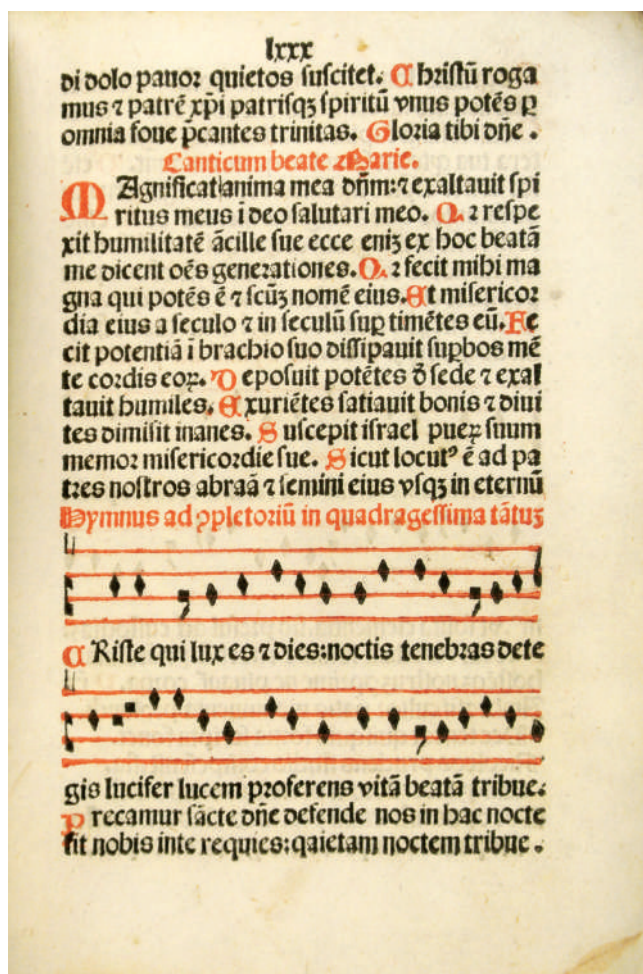 lxxx
di dolo pauor quietos suscitet. Christū roga
mus ⁊ patrē xp̄i patrisqꝫ spiritū vnus potēs ꝑ
omnia foue p̄cantes trinitas. Gloria tibi dn̄e.
Canticum beate Marie.
MAgnificat anima mea dn̄m: ⁊ exaltauit spi
ritus meus ī deo salutari meo. Qꝛ respe
xit humilitatē ācille sue ecce enіꝫ ex hoc beatā
me dicent oēs generationes. Qꝛ fecit mihi ma
gna qui potēs ē ⁊ scūꝫ nomē eius. Et misericor
dia eius a seculo ⁊ in seculū suꝑ timētes eū. Fe
cit potentiā ī brachio suo dissipauit suꝑbos mē
te cordis eoꝝ. Deposuit potētes d̄ sede ⁊ exal
tauit humiles. Exuriētes satiauit bonis ⁊ diui
tes dimisit inanes. Suscepit israel pueꝝ suum
memor misericordie sue. Sicut locutꝰ ē ad pa
tres nostros abraā ⁊ semini eius vsqꝫ in eternū
Hymnus ad ꝯpletoriū in quadragessima tātuꝫ
CRiste qui lux es ⁊ dies: noctis tenebras dete
gis lucifer lucem proferens vitā beatā tribue.
Precamur sācte dn̄e defende nos in hac nocte
sit nobis inte requies: qaietam noctem tribue.